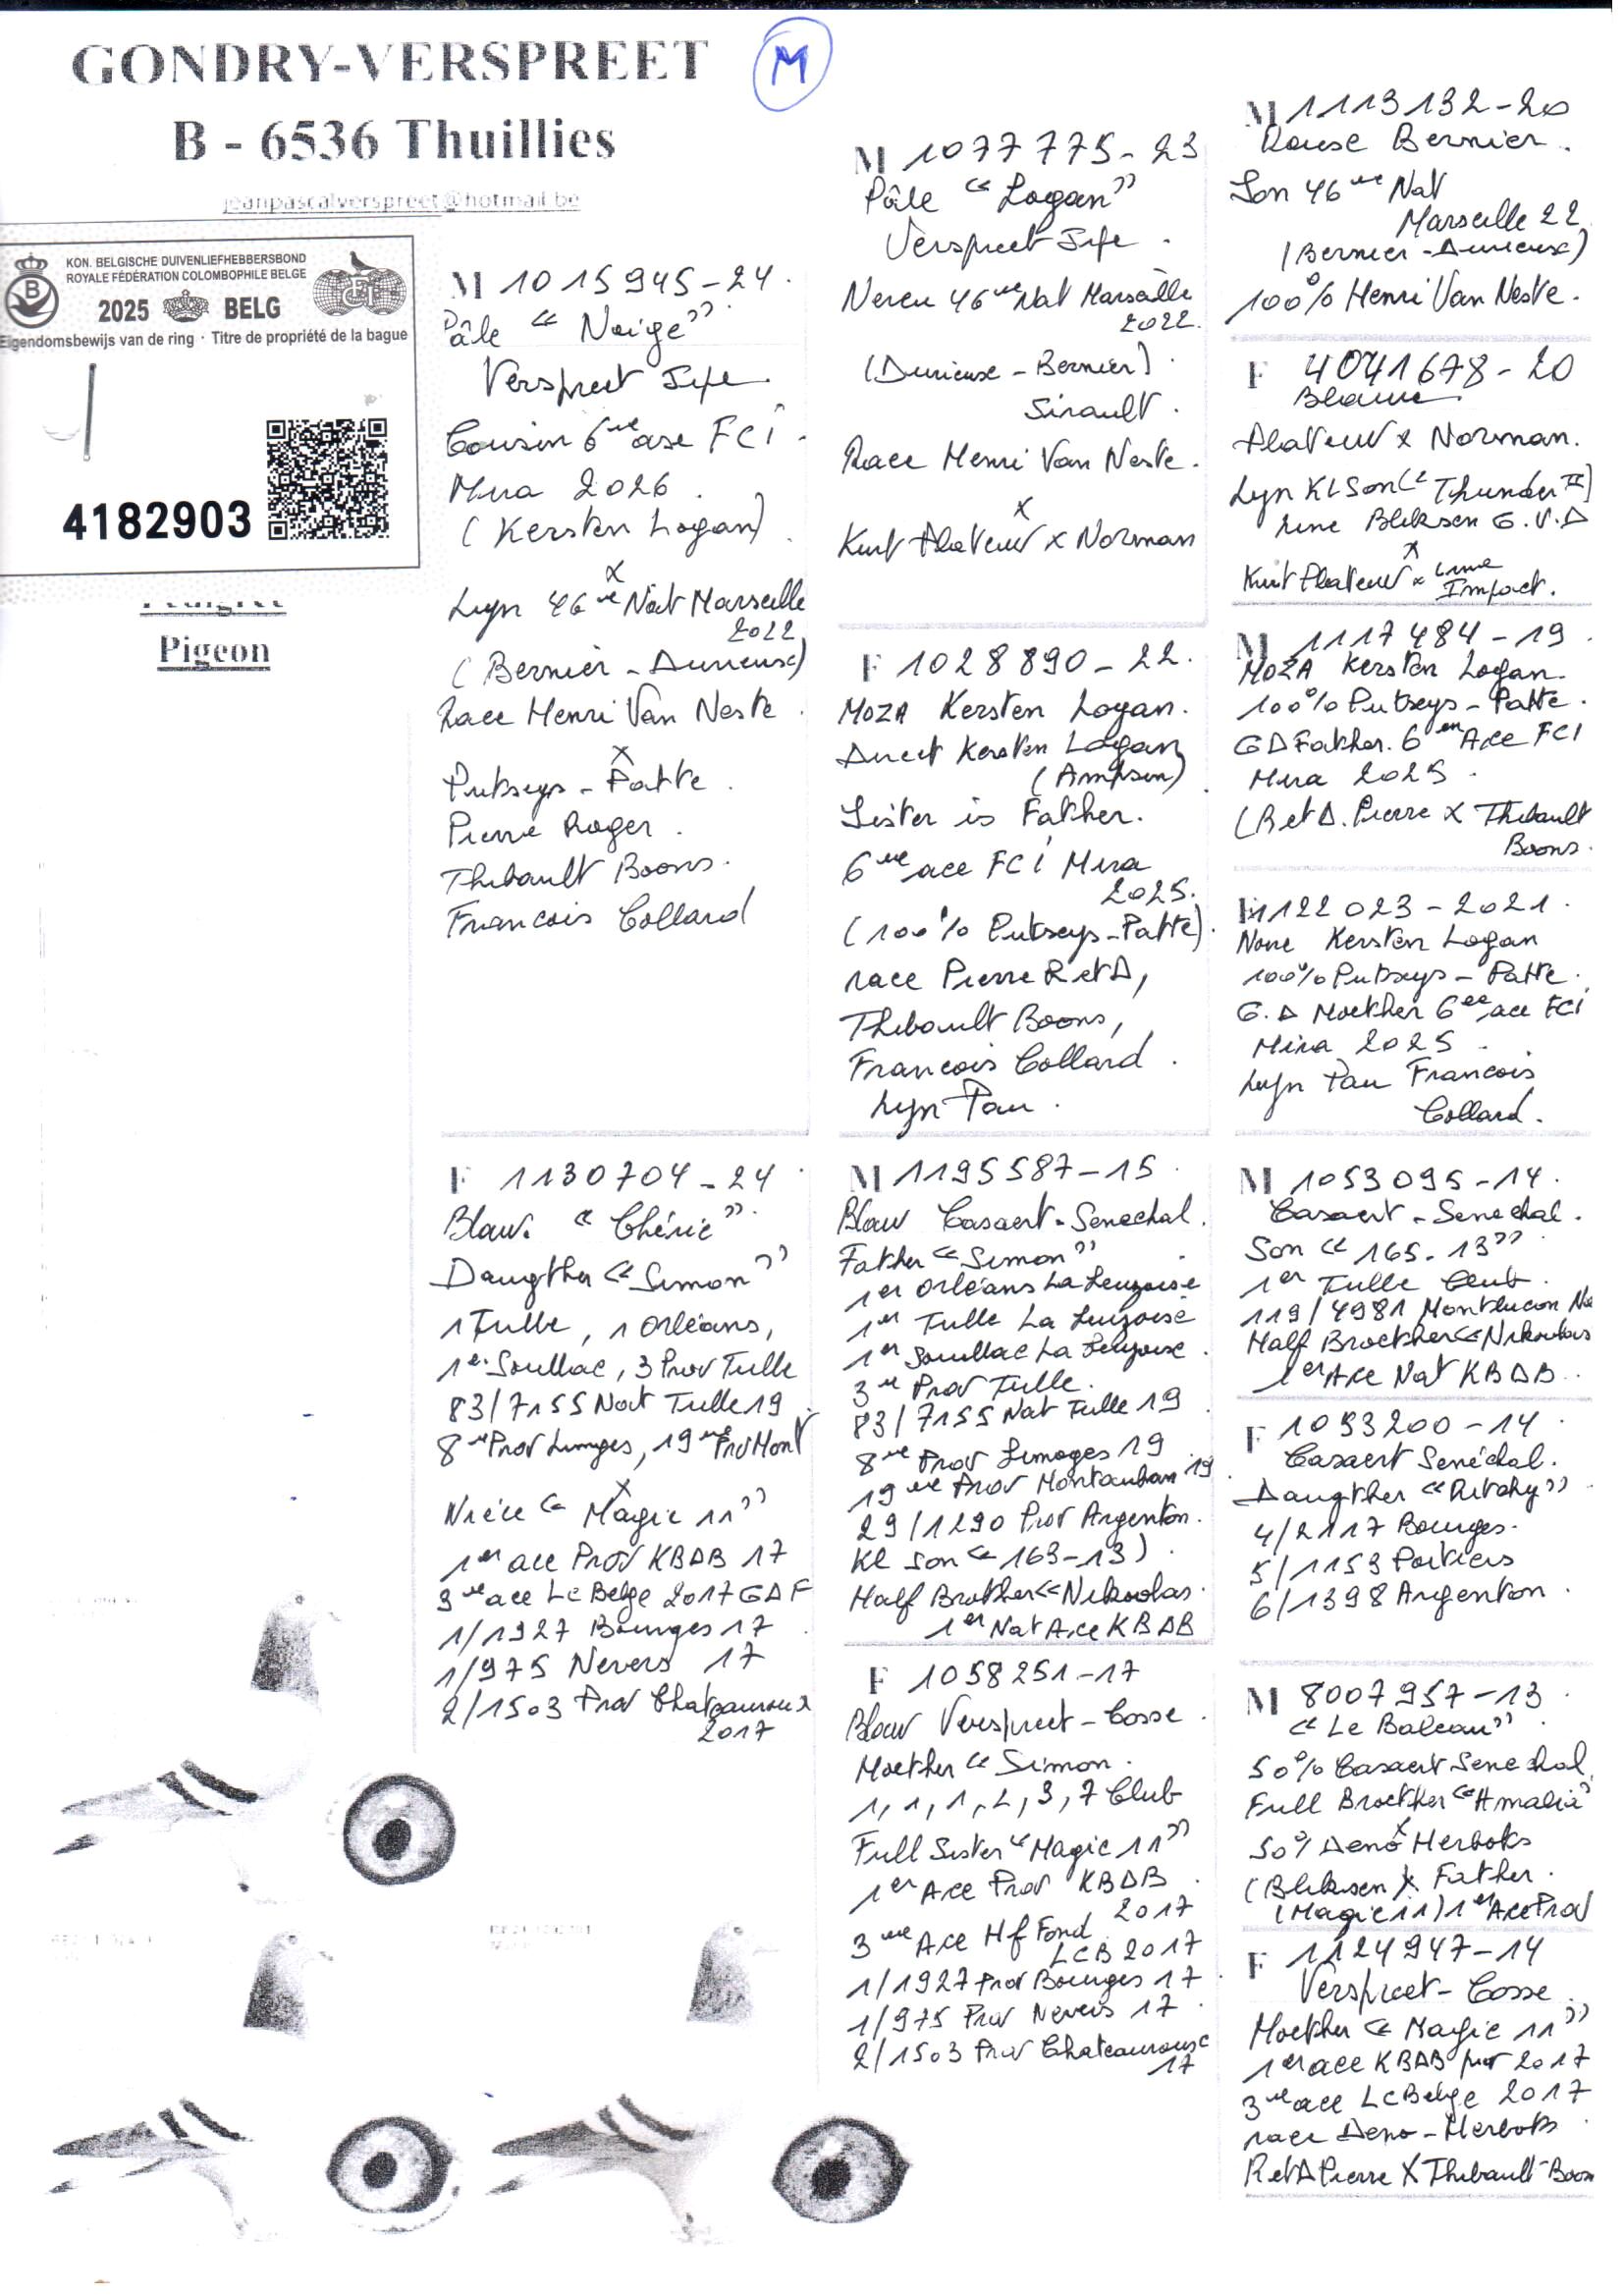 GONDRY-VERSPREET
B - 6536 Thuillies
jeanpascalverspreet@hotmail.be
M
KON. BELGISCHE DUIVENLIEFHEBBERSBOND
ROYALE FÉDÉRATION COLOMBOPHILE BELGE
2025 BELG
Eigendomsbewijs van de ring · Titre de propriété de la bague
4182903
Pedigree
Pigeon
M 1015945-24.
Pâle "Neige"
Verspreet Jife
Cousin 6me ase FCI.
Mira 2026.
(Kersten Logan)
x
Lyn 46ve Nat Marseille
2022
(Bernier - Durieux)
Race Henri Van Neste.
x
Putseys - Patte.
Pierre Roger.
Thibault Boons.
Francois Collard
F 1130704-24
Blauw. "Chérie".
Daugther "Simon"
1 Tulle, 1 Orléans,
1er Souillac, 3 Prov Tulle
83/7155 Nat Tulle 19
8me Prov Limoges, 19me Prov Mont
x
Nièce "Magic 11"
1er ace Prov KBDB 17
3me ace Lc Belge 2017 GDF
1/1927 Bourges 17
1/975 Nevers 17
2/1503 Prov Chateauroux
2017
M 1077775-23
Pâle "Logan"
Verspreet Jife.
Neveu 46me Nat Marseille
2022.
(Durieux - Bernier)
Sirault.
Race Henri Van Neste.
x
Kurt Plateuw x Norman
F 1028890-22.
MOZA Kersten Logan.
Direct Kersten Logan
(Ampsin)
Sister is Father.
6me ace FCI Mira
2025.
(100% Putseys-Patte).
race Pierre R et D,
Thibault Boons,
Francois Collard.
Lyn Pau.
M 1195587-15.
Blauw Casaert-Senechal.
Father "Simon"
1er Orléans La Leuzoise
1er Tulle La Leuzoise
1er Souillac La Leuzoise.
3me Prov Tulle.
83/7155 Nat Tulle 19
8me Prov Limoges 19
19me Prov Montauban 19
29/1290 Prov Argenton.
Kl son "163-13)
Half Brother "Nikolas.
1er Nat Ace KBDB
F 1058251-17
Blauw Verspreet-Cosse.
Moether "Simon.
1, 1, 1, 2, 3, 7 Club
Full Sister "Magic 11"
1er Ace Prov KBDB.
2017
3me Ace Hf Fond
LCB 2017
1/1927 Prov Bourges 17
1/975 Prov Nevers 17
2/1503 Prov Chateauroux
17
M 1113132-20
Rouse Bernier.
Son 46me Nat
Marseille 22.
(Bernier-Durieux)
100% Henri Van Neste.
F 4041678-20
Blauwe.
Plateuw x Norman.
Lyn Kl Son ("Thunder II)
Line Bliksen G.V.D
x
Kurt Plateuw x Line
Impact.
M 1117484-19.
MOZA Kersten Logan.
100% Putseys-Patte.
GD Father. 6en Ace FCI
Mira 2025.
(R et D. Pierre x Thibault
Boons.
F 1122023-2021.
Noire Kersten Logan
100% Putseys-Patte.
G.D Moether 6ee ace FCI
Mira 2025.
Lyn Pau Francois
Collard.
M 1053095-14.
Casaert-Senechal.
Son "165-13"
1er Tulle Club.
119/4981 Montlucon Na
Half Broether "Nikolas
1er Ace Nat KBDB.
F 1093200-14.
Casaert Senéchal.
Daugther "Ritchy".
4/2117 Bourges.
5/1153 Poitiers
6/1398 Argenton.
M 8007957-13.
"Le Baleau".
50% Casaert Senechal
Full Broether "Amalia"
x
50% Deno Herboks
(Bliksen x Father.
(Magic 11) 1er Ace Prov
F 1124947-14
Verspreet-Cosse.
Moether "Magic 11"
1er ace KBDB prov 2017
3me ace Lc Belge 2017
race Deno-Herbots.
R et D Pierre X Thibault Boon